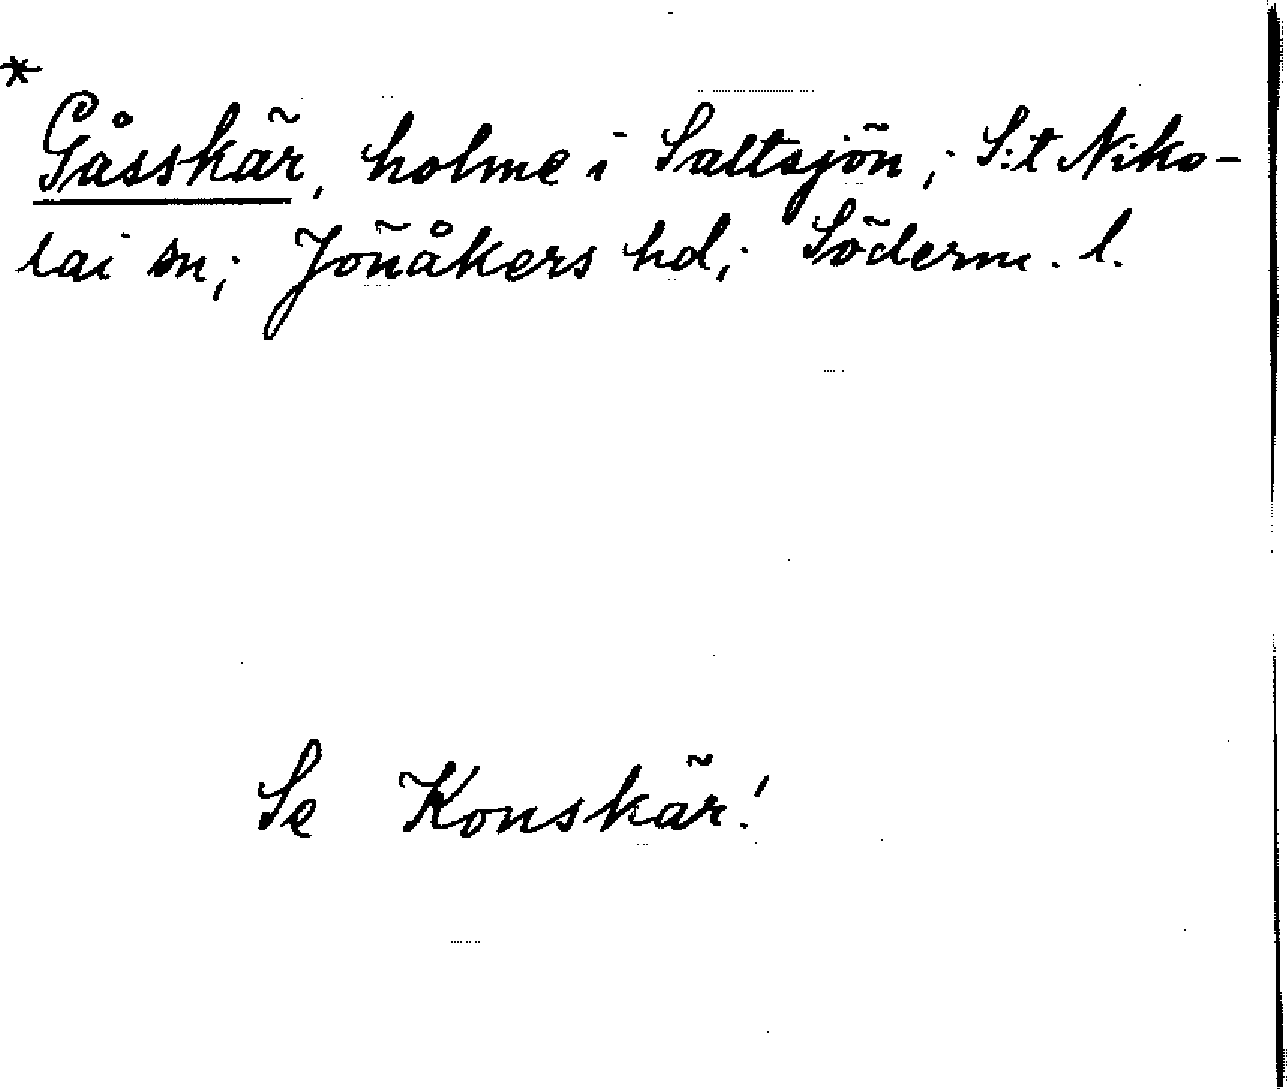 * Gåsskär, holme i Saltsjön; S:t Niko-
lai sn; Jönåkers hd; Söderm. l.
Se Konskär!